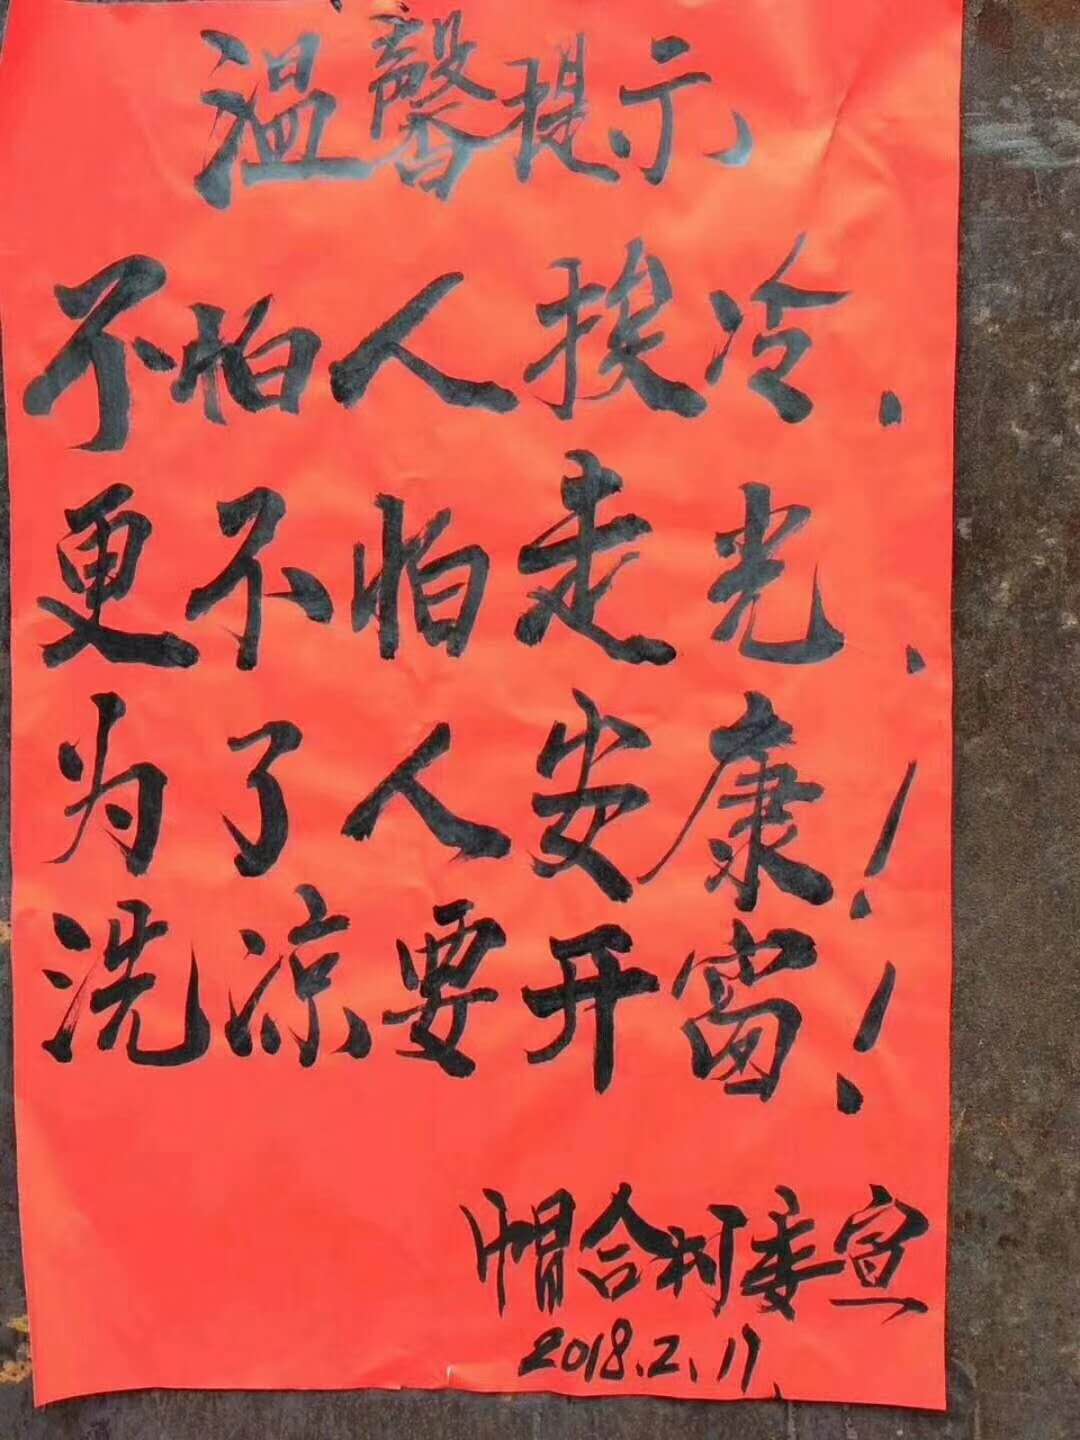 温馨提示
不怕人挨冷.
更不怕走光.
为了人安康!
洗凉要开窗!
帽合村委宣
2018.2.11